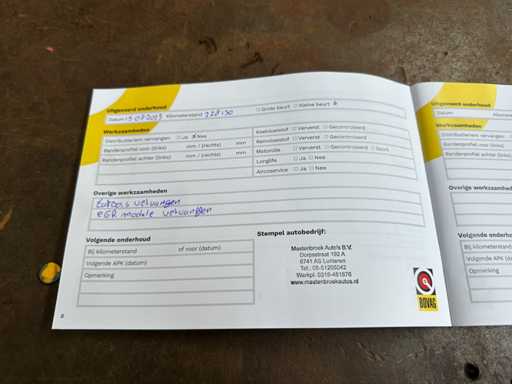 Uitgevoerd onderhoud
Datum Kilometerstand □ Grote beurt □ Kleine beurt
Werkzaamheden
Distributieriem vervangen: □ Ja Nee
Bandenprofiel voor (links) mm / (rechts) mm
Bandenprofiel achter (links) mm / (rechts) mm
Koelvloeistof □ Ververst □ Gecontroleerd
Remvloeistof □ Ververst □ Gecontroleerd
Motorolie □ Ververst □ Gecontroleerd □ Soort
Longlife □ Ja □ Nee
Aircoservice □ Ja □ Nee
Overige werkzaamheden
vervangen
EGR module vervangen
Volgende onderhoud
Bij kilometerstand of voor (datum)
Volgende APK (datum)
Opmerking
Stempel autobedrijf:
Mastenbroek Auto's B.V.
Dorpsstraat 192 A
6741 AS Lunteren
www.mastenbroekautos.nl
BOVAG
Uitgevoerd onderhoud
Datum
Werkzaamheden
Distributieriem vervangen:
Bandenprofiel voor (links)
Bandenprofiel achter (links)
Overige werkzaamheden
Volgende onderhoud
Bij kilometerstand
Volgende APK (da
Opmerking